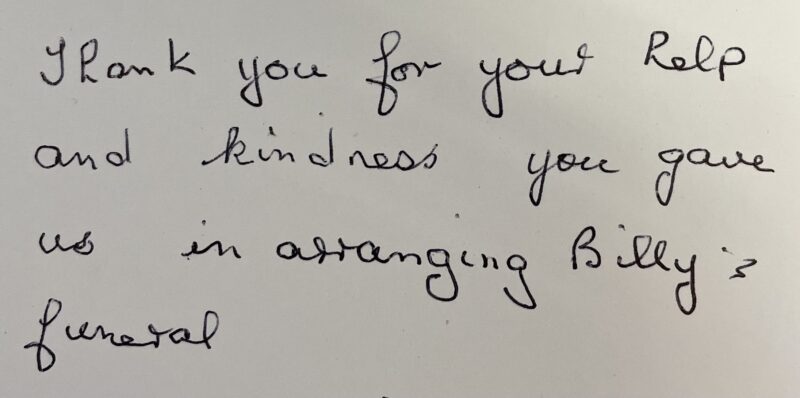 Thank you for your help
and kindness you gave
us in arranging Billy's
funeral